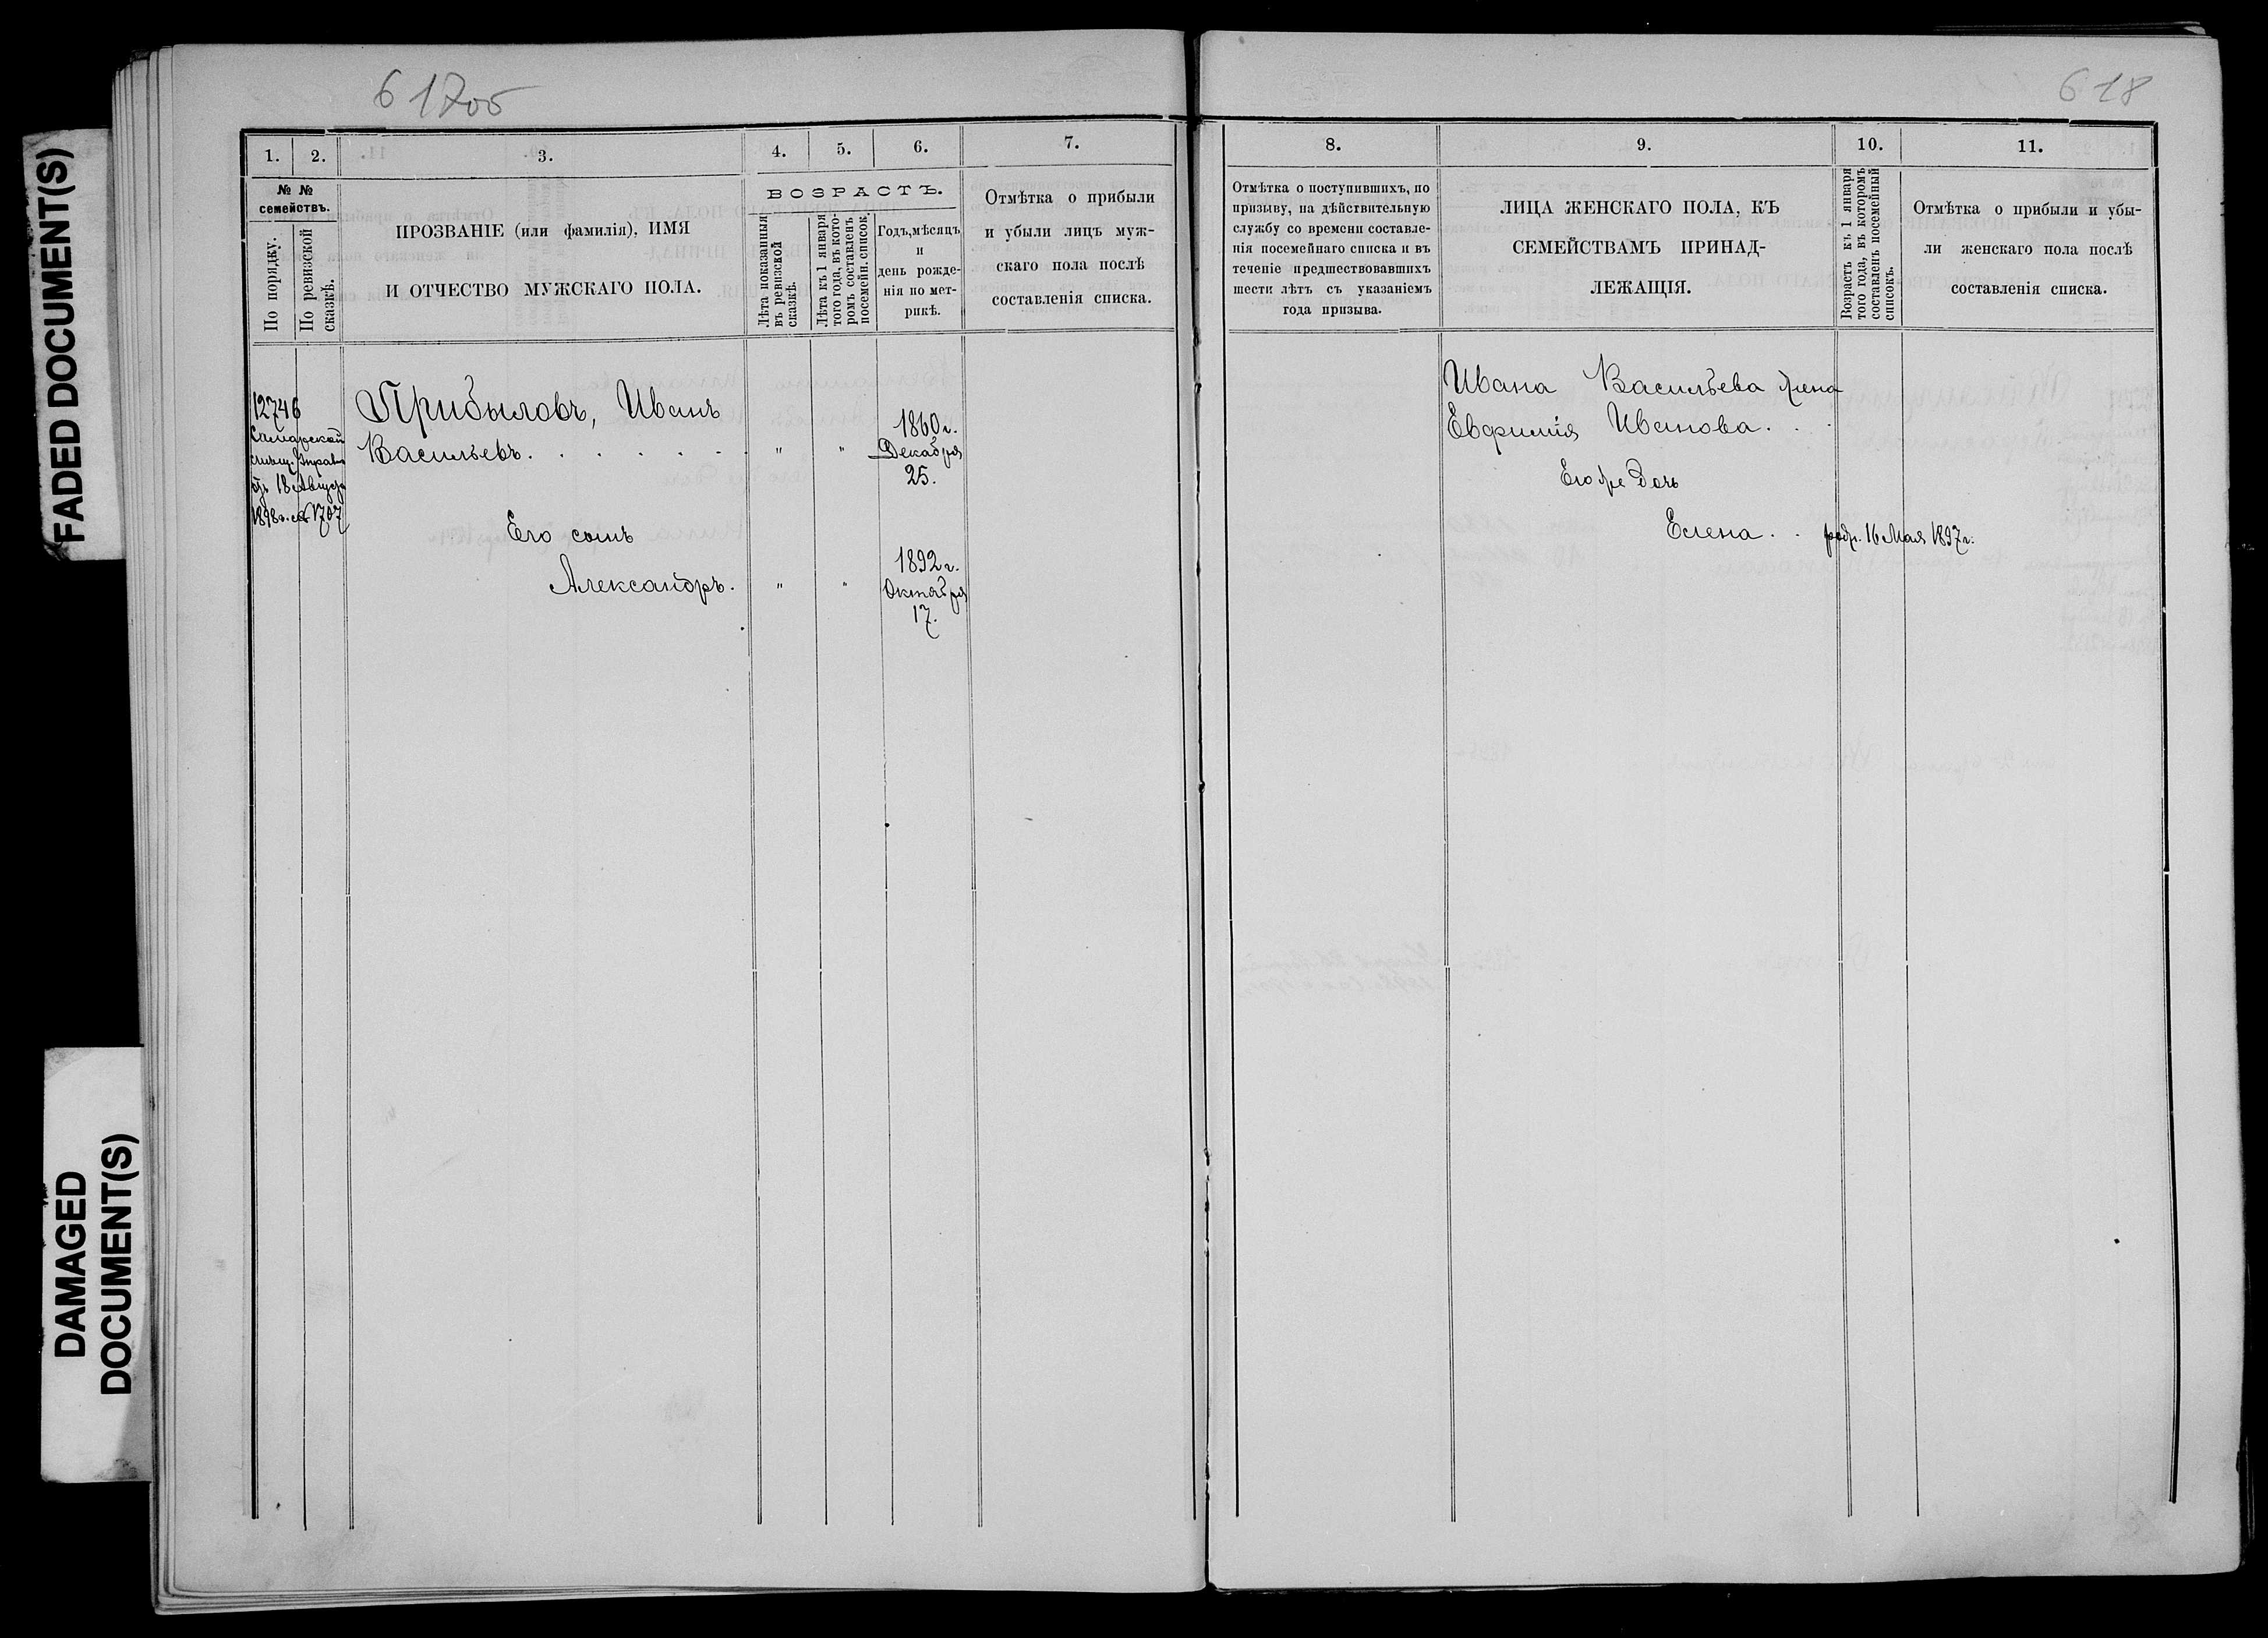 FADED DOCUMENT(S)
DAMAGED
DOCUMENT(S)
617об
618
1. 2. 3. 4. 5. 6. 7.
№ №
семействъ.
По порядку.
По ревизской
сказкѣ.
ПРОЗВАНІЕ (или фамилія), ИМЯ
И ОТЧЕСТВО МУЖСКАГО ПОЛА.
ВОЗРАСТЪ.
Лѣта показанныя
въ ревизской
сказкѣ.
Лѣта къ 1 января
того года, въ кото-
ромъ составленъ
посемейн. список.
Годъ, мѣсяцъ
и
день рожде-
нія по мет-
рикѣ.
Отмѣтка о прибыли
и убыли лицъ муж-
скаго пола послѣ
составленія списка.
12746
Самарской
мѣщ. Управы
отъ 18 Августа
1898 г. № 1707
Прибыловъ, Иванъ
Васильевъ. . . . . . . " "
1860 г.
Декабря
25.
Его сынъ
Александръ. " "
1892 г.
Октября
17.
8. 9. 10. 11.
Отмѣтка о поступившихъ, по
призыву, на дѣйствительную
службу со времени составле-
нія посемейнаго списка и въ
теченіе предшествовавшихъ
шести лѣтъ съ указаніемъ
года призыва.
ЛИЦА ЖЕНСКАГО ПОЛА, КЪ
СЕМЕЙСТВАМЪ ПРИНАД-
ЛЕЖАЩІЯ.
Возрастъ къ 1 января
того года, въ которомъ
составленъ посемейный
списокъ.
Отмѣтка о прибыли и убы-
ли женскаго пола послѣ
составленія списка.
Ивана Васильева жена
Евфимія Иванова. . .
Его же дочь
Елена . . родл. 16 Мая 1897 г.